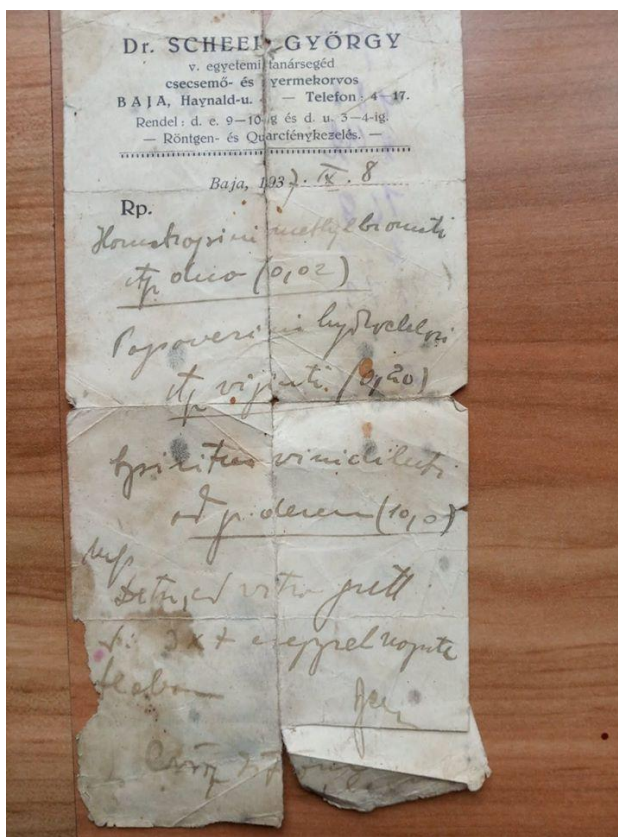 Dr. SCHEER GYÖRGY
v. egyetemi tanársegéd
csecsemő- és gyermekorvos
BAJA, Haynald-u. — Telefon 4—17.
Rendel: d. e. 9—10-ig és d. u. 3—4-ig.
— Röntgen- és Quarcfénykezelés. —
Baja, 1937. IX. 8
Rp.
Homatropini methylbromati
duo (0,02)
Papaverini hydrochlori
viginti (0,20)
Spiritus vini diluti
ad decem (10,0)
Detur ad vitr. gutt
3 x cseppel naponta